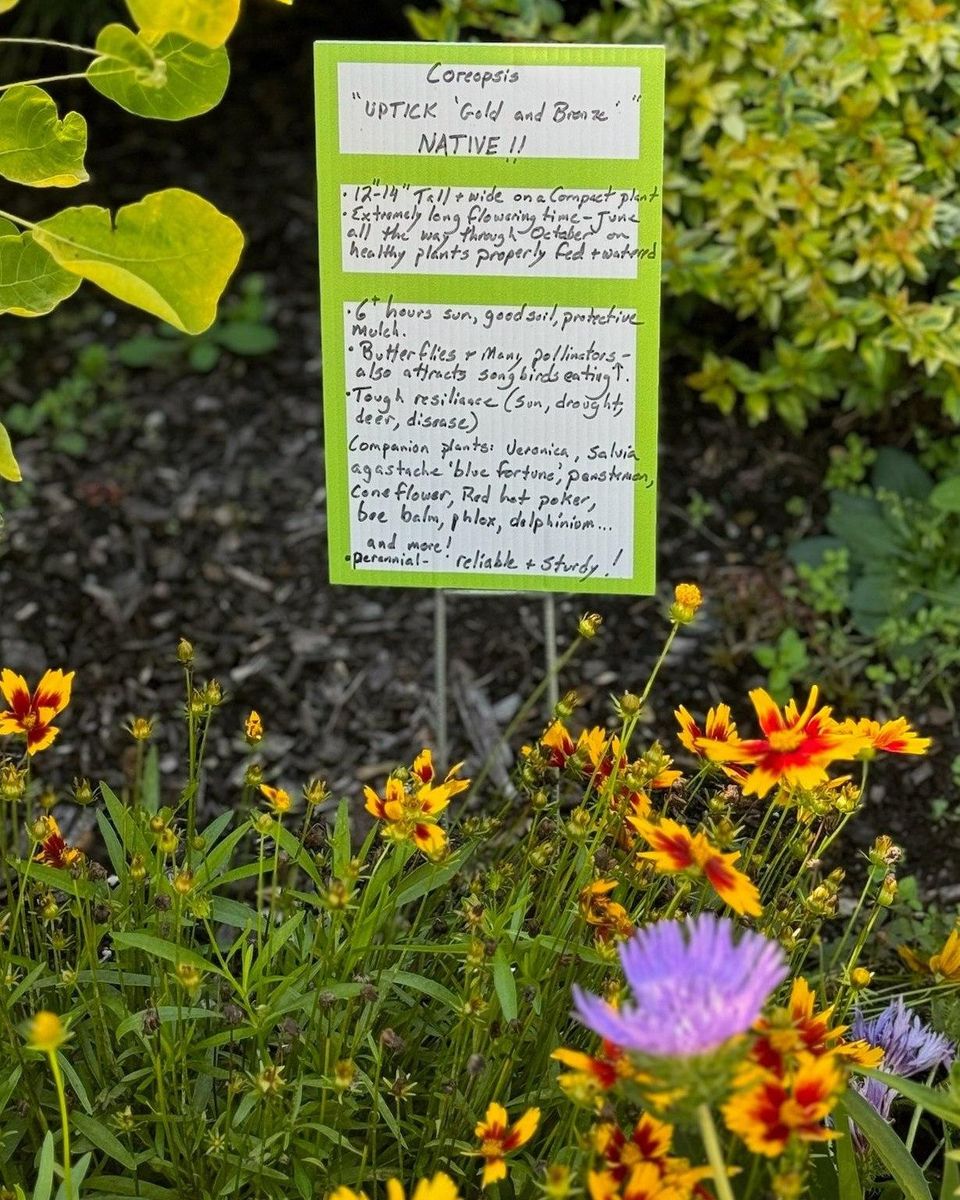 Coreopsis
"UPTICK 'Gold and Bronze' "
NATIVE !!
• 12"-14" Tall + wide on a Compact plant
• Extremely long flowering time - June
all the way through October on
healthy plants properly fed + watered
• 6+ hours sun, good soil, protective
mulch.
• Butterflies + Many pollinators -
also attracts songbirds eating↑.
• Tough resiliance (sun, drought,
deer, disease)
Companion plants: Veronica, Salvia
agastache 'blue fortune', penstemon,
Coneflower, Red hot poker,
bee balm, phlox, delphinium...
and more!
• perennial - reliable + sturdy!